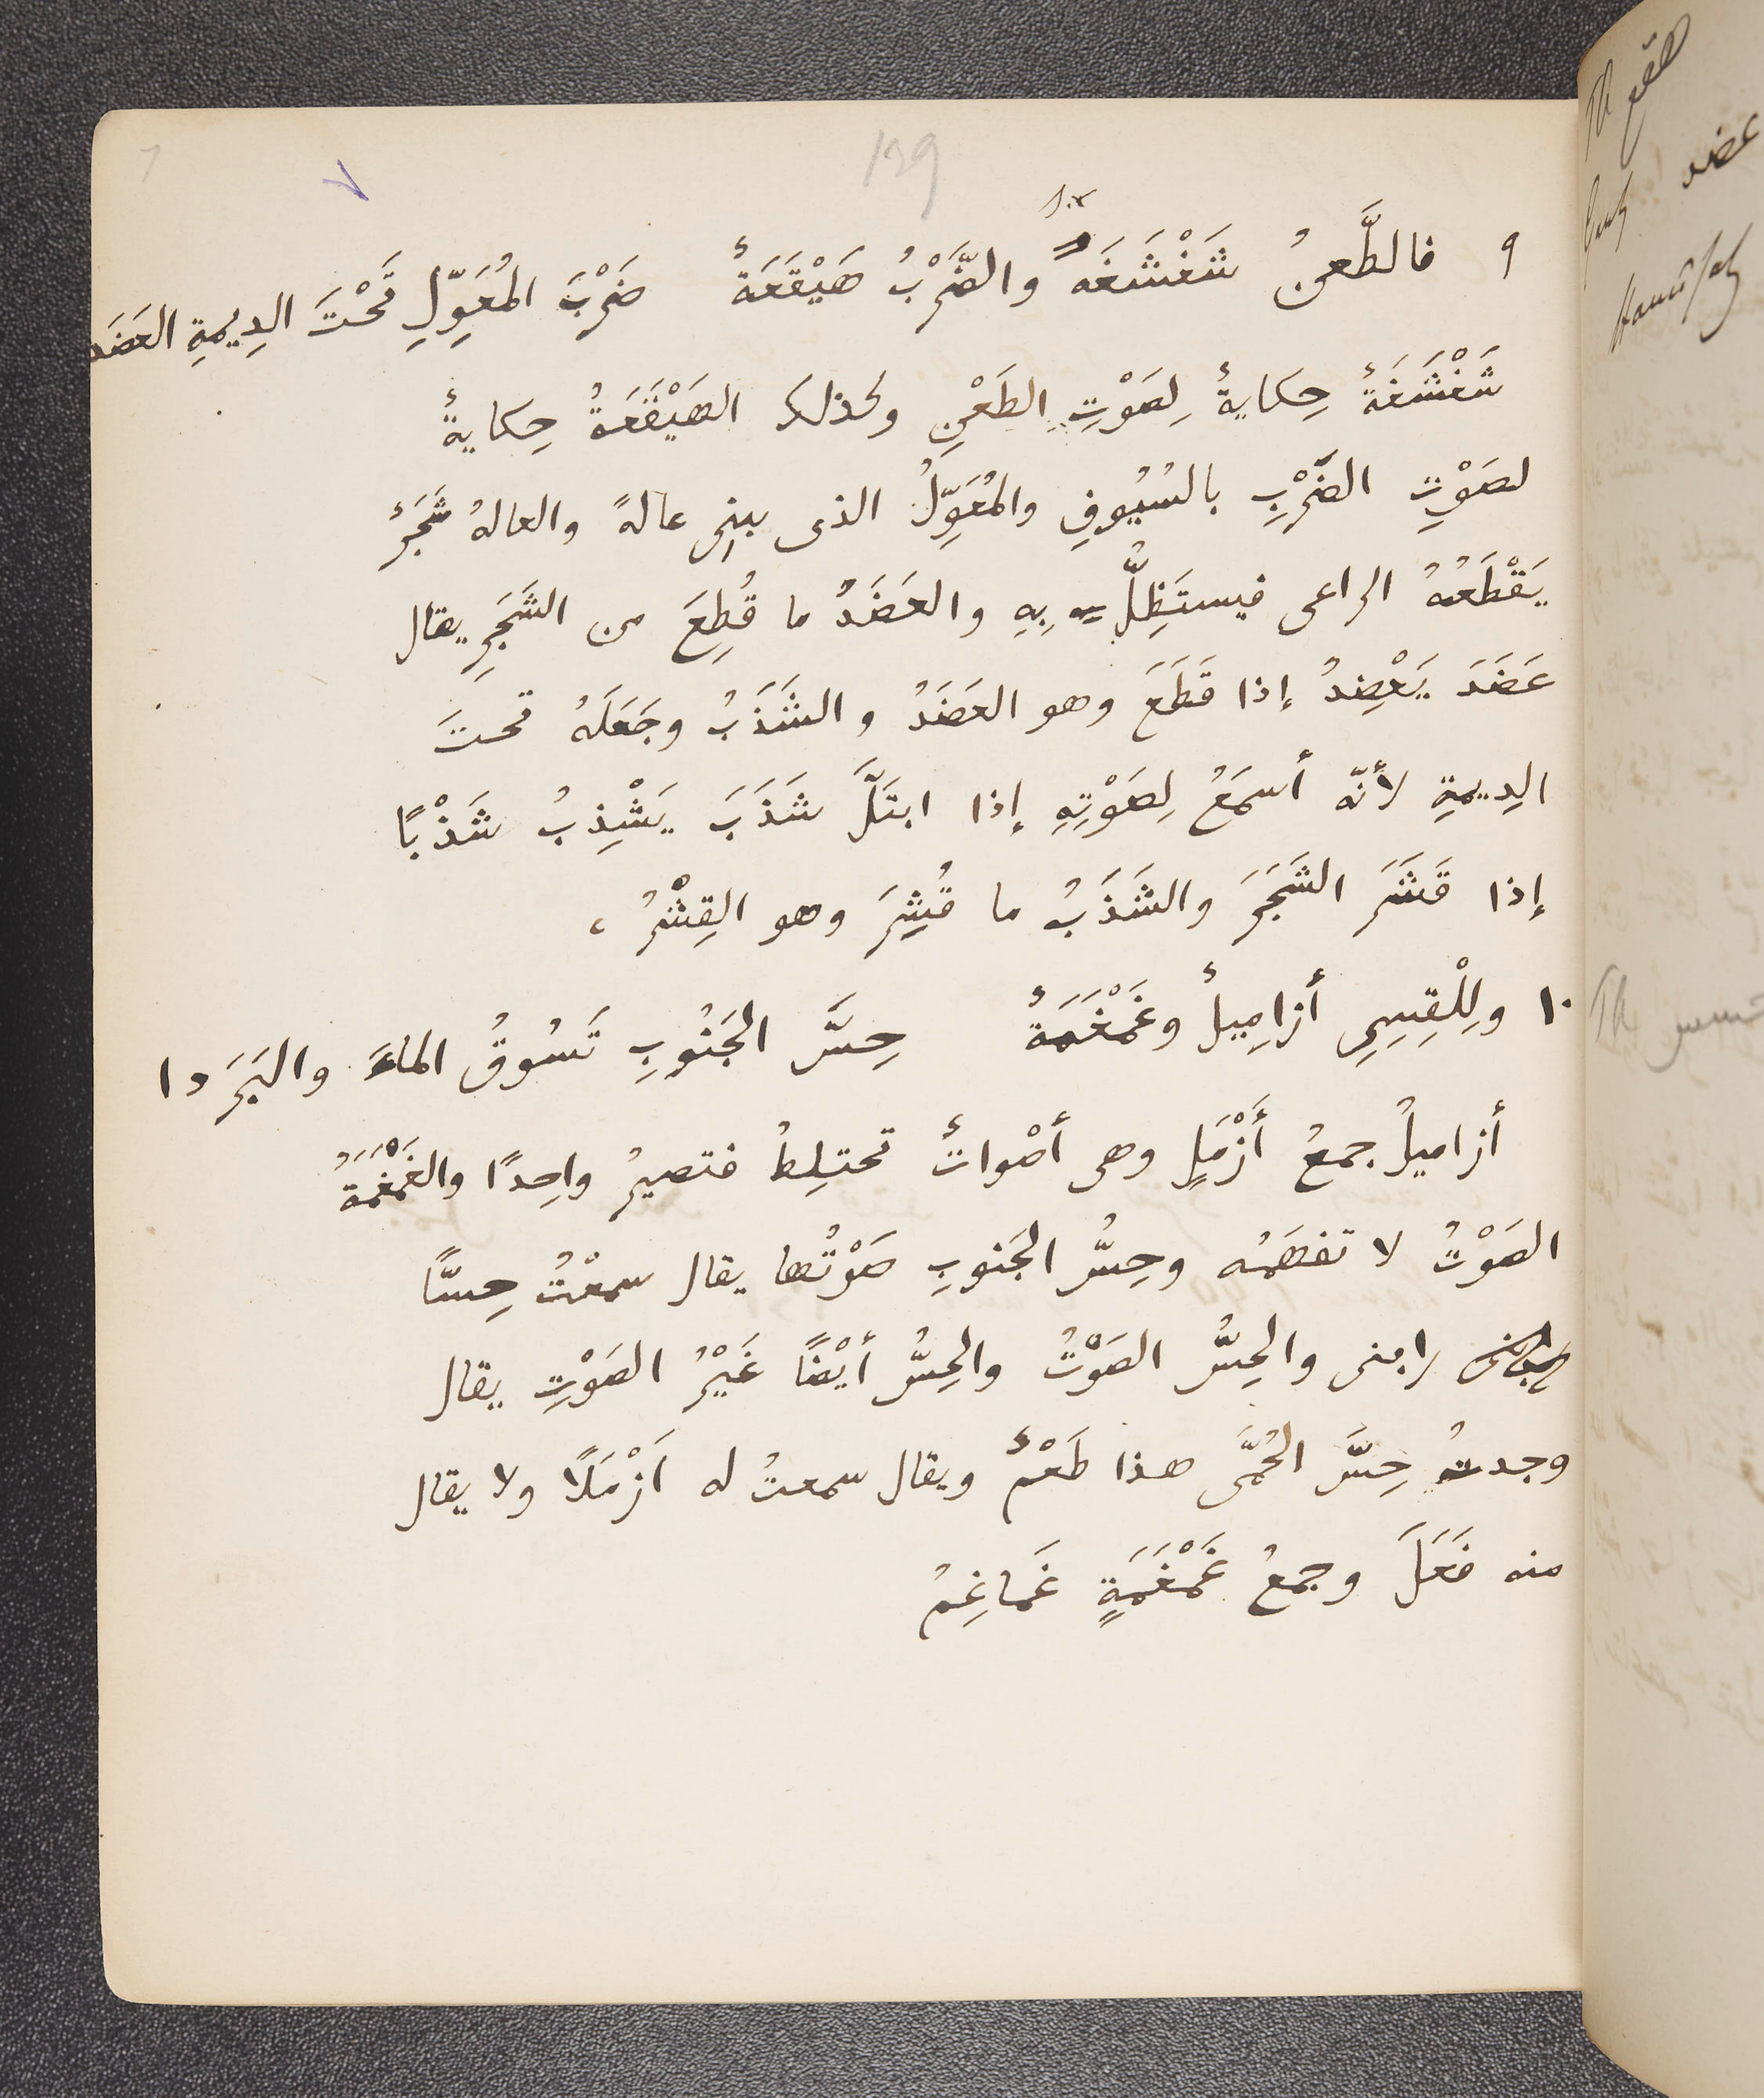 139
sic
٩ فالطَّعنُ شَغْشَغَه والضَّرْبُ هَيْقَعَةٌ ضَرْبَ المُعَوِّلِ تَحْتَ الدِيمةِ العَضَد
شَغْشَغَةٌ حِكايةٌ لِصَوْتِ الطَعْنِ وكذلك الهَيْقَعَةُ حِكايةٌ
لصَوْتِ الضَرْبِ بالسُيُوفِ والمُعَوِّلُ الذى يبنِى عالةً والعالةُ شَجَرٌ
يَقْطَعُهُ الراعى فيستَظِلُّ بِهِ والعَضَدُ ما قُطِعَ من الشَجَرِ يقال
عَضَدَ يَعْضِدُ إذا قَطَعَ وهو العَضَدُ والشَذَبُ وجَعَلَهُ تحتَ
الدِيمةِ لأنّه أسمَعُ لِصَوْتِهِ إذا ابتَلَّ شَذَبَ يَشْذِبُ شَذْبًا
إذا قَشَرَ الشَجَرَ والشَذَبُ ما قُشِرَ وهو القِشْرُ ،
١٠ ولِلْقِسِىِ أزامِيلٌ وغَمْغَمَةٌ حِسَّ الجَنُوبِ تَسُوقُ الماءَ والبَرَدا
أزاميلُ جمعُ أَزْمَلٍ وهى أصْواتٌ تختلِطُ فتصيرُ واحِدًا والغَمْغَمَةُ
الصَوْتُ لا تفهَمُه وحِسُّ الجَنوبِ صَوْتُها يقال سمعْتُ حِسًّا
رابنى والحِسُّ الصَوْتُ والحِسُّ أيْضًا غَيْرُ الصَوْتِ يقال
وجدتُ حِسَّ الحُمَّى هذا طَعْمٌ ويقال سمعتُ له أَزْمَلًا ولا يقال
منه فَعَلَ وجمعُ غَمْغَمَةٍ غَماغِمُ
هقع Th
عضد